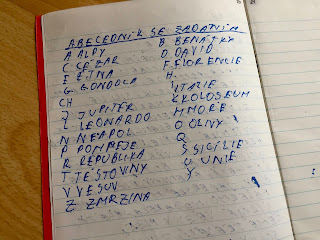 ABECEDNÍK SE ZADÁNÍM
A ALPY B BENÁTKY
C CÉZAR D DAVID
E ETNA F FLORENCIE
G GONDOLA H
CH I ITÁLIE
J JUPITER K KOLOSEUM
L LEONARDO M MOŘE
N NEAPOL O
P POMPEJE Q
R REPUBLIKA S SICÍLIE
T TĚSTOVINY U UNIE
V VESUV Y
Z ZMRZLINA